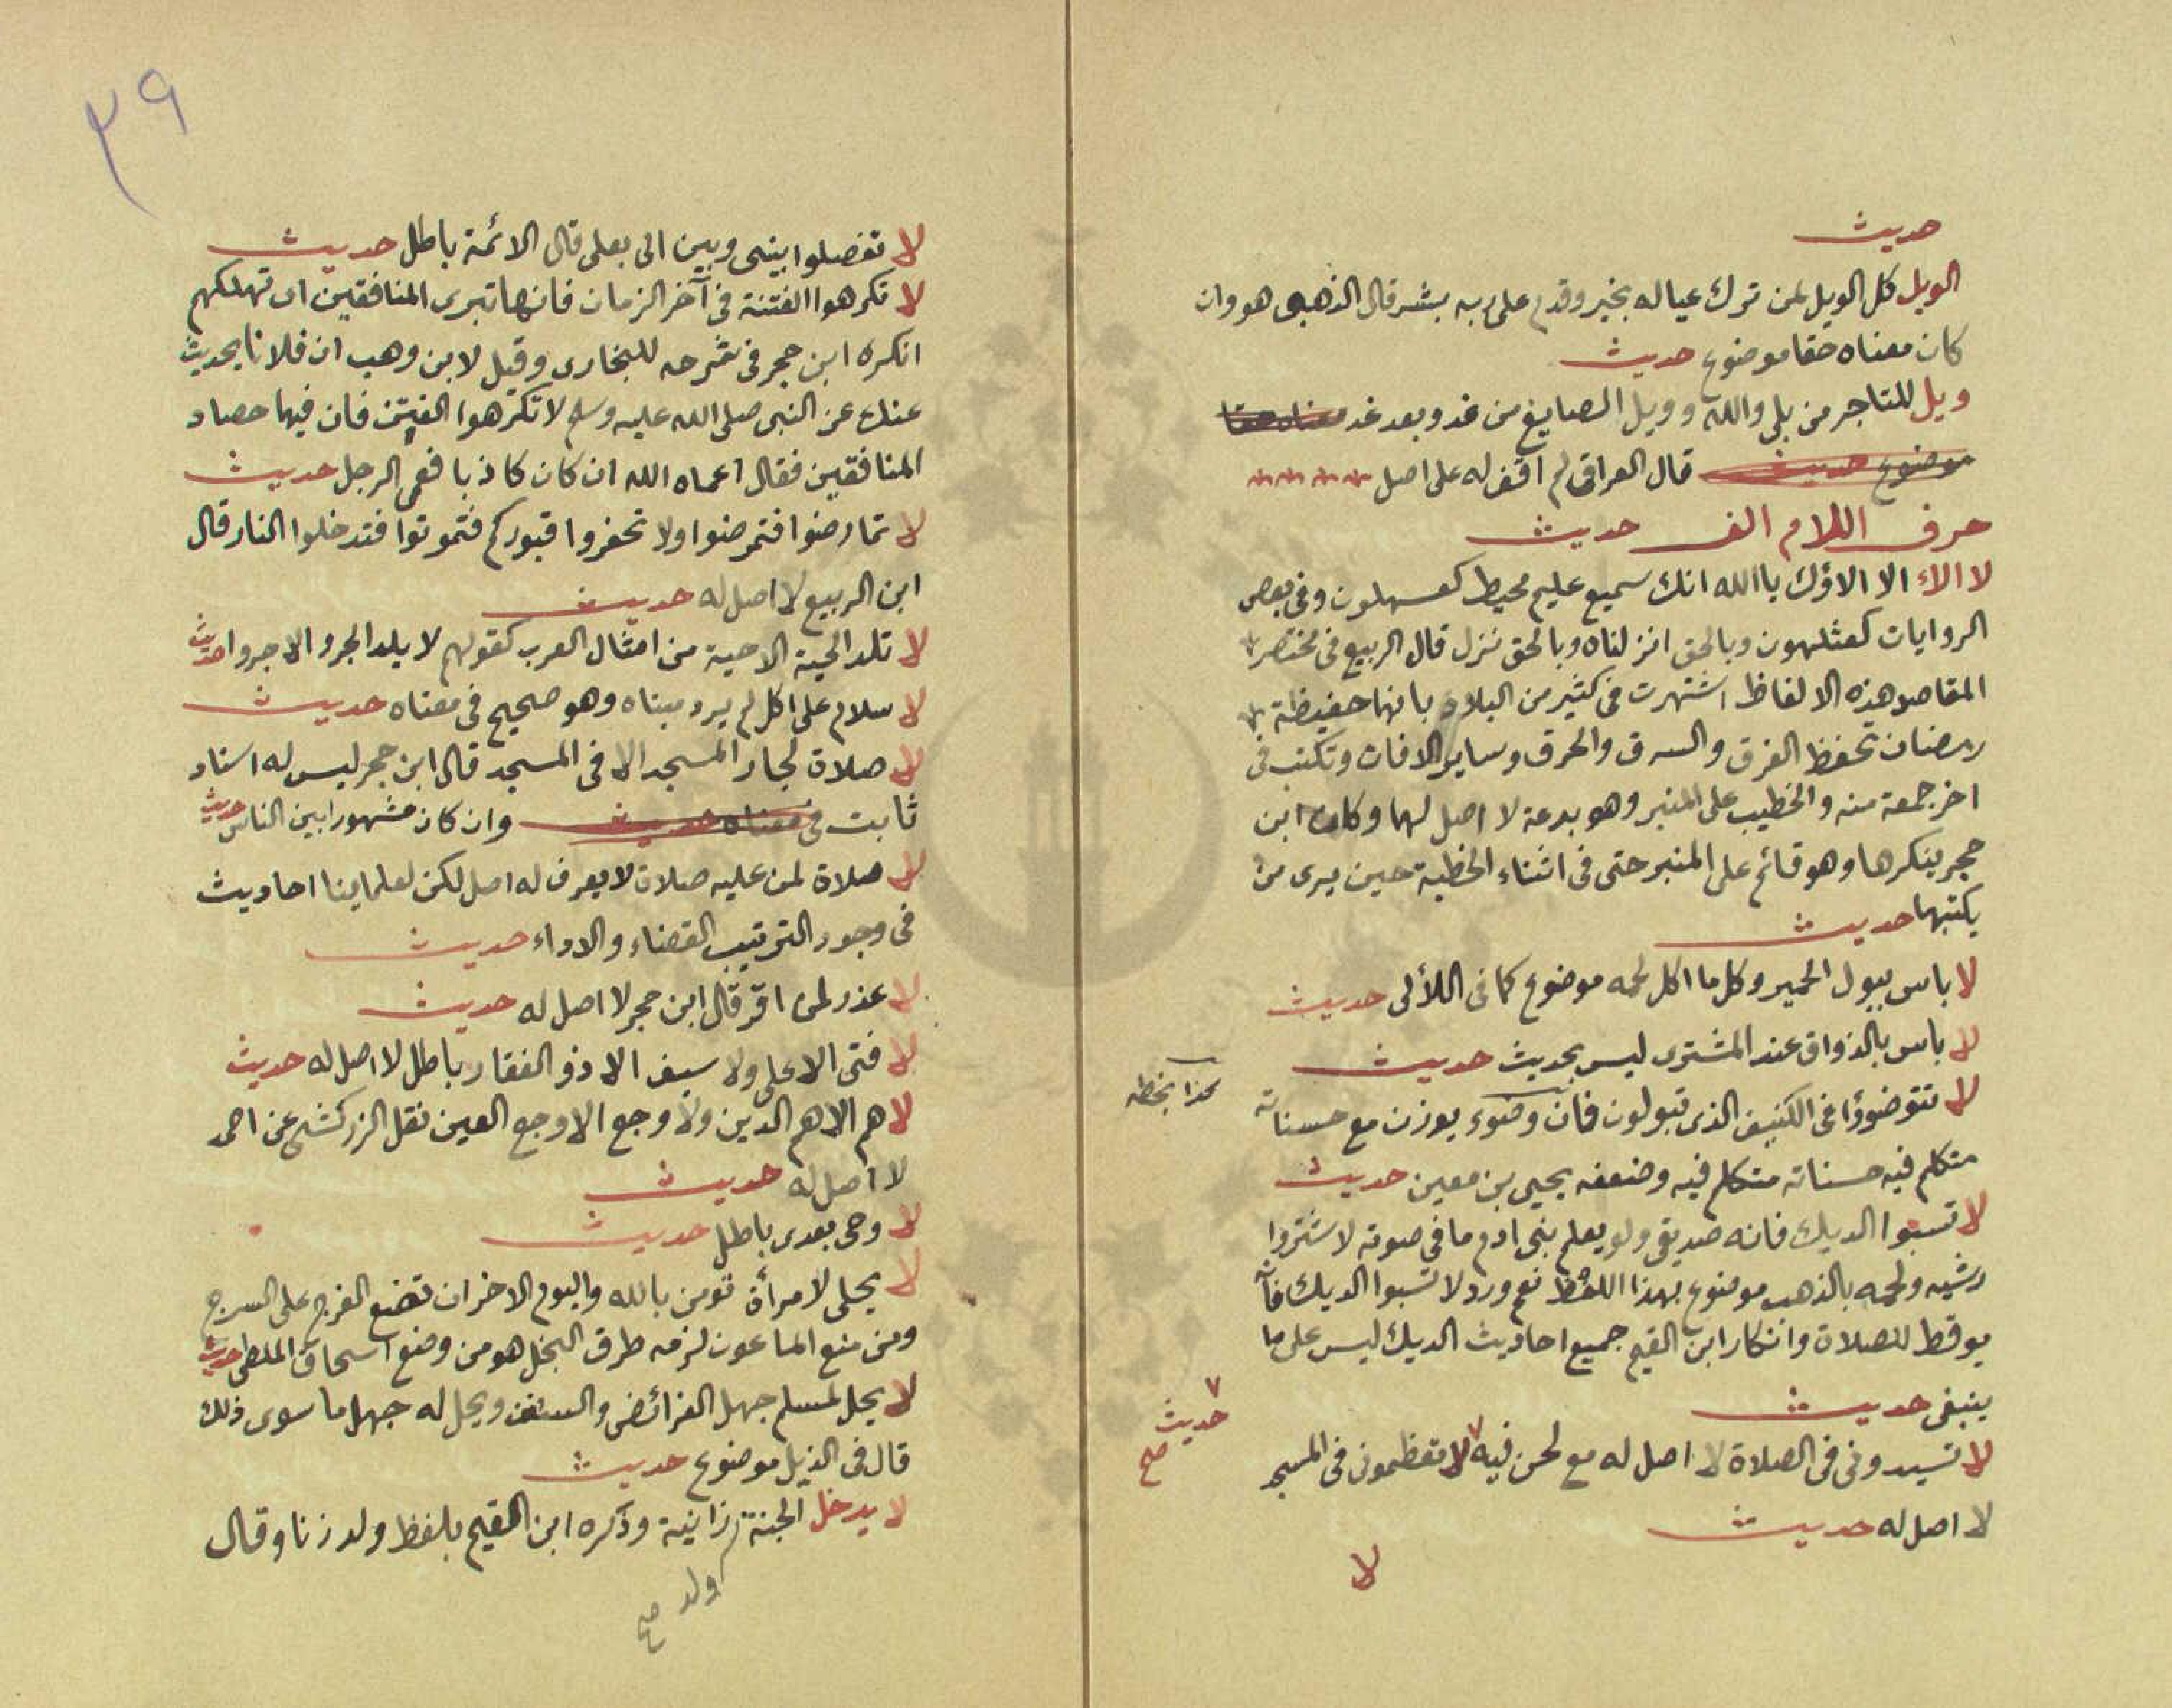 حديث
الويل كل الويل لمن ترك عياله بخير وقدم على ربه بشر قال الذهبى هو وان
كان معناه حقا موضوع حديث
ويل للتاجر من بلى والله وويل الصايغ من غد وبعد غد معناه حقا
موضوع حديث قال العراقى لم اقف له على اصل
حرف اللام الف حديث
لا الاء الا الاؤك يا الله انك سميع عليم محيط كعسهلون وفى بعض
الروايات كعثلهون وبالحق انزلناه وبالحق نزل قال الربيع فى مختصر
المقاصد هذه الالفاظ اشتهرت فى كثير من البلاد بانها حفيظة
رمضان تحفظ الغرق والسرق والحرق وساير الافات وتكتب فى
اخر جمعة منه والخطيب على المنبر وهو بدعة لا اصل لها وكان ابن
حجر ينكرها وهو قائم على المنبر حتى فى اثناء الخطبة حين يرى من
يكتبها حديث
لا باس ببول الحمير وكل ما اكل لحمه موضوع كما فى اللألى حديث
لا باس بالذواق عند المشترى ليس بحديث حديث
لا تتوضوؤا فى الكنيف الذى تبولون فان وضوء يوزن مع حسناته
كذا بخطه
متكلم فيه حسناته متكلم فيه وضعفه يحيى بن معين حديث
لا تسبوا الديك فانه صديقى ولو يعلم بنى ادم ما فى صوته لاشتروا
رشيه ولحمه بالذهب موضوع بهذا اللفظ نعم ورد لا تسبوا الديك فانه
يوقظ للصلاة وانكار ابن القيم جميع احاديث الديك ليس على ما
ينبغى حديث
لا تسيدونى فى الصلاة لا اصل له مع لحن فيه لا تعظمونى فى المسجد
حديث صح
لا اصل له حديث
لا
٣٩
لا تفصلوا بينى وبين الى بعلى قال الائمة باطل حديث
لا تكرهوا الفتنة فى آخر الزمان فانها تبرى المنافقين اى تهلكهم
انكره ابن حجر فى شرحه للبخارى وقيل لابن وهب ان فلانا يحديث
عنك عن النبى صلى الله عليه وسلم لا تكرهوا الفتن فان فيها حصاد
المنافقين فقال اعماه الله ان كان كاذبا فعمى الرجل حديث
لا تمارضوا فتمرضوا ولا تحفروا قبوركم فتموتوا فتدخلوا النار قال
ابن الربيع لا اصل له حديث
لا تلد الحية الا حية من امثال العرب كقولهم لا يلد الجرو الا جروا حديث
لا سلام على اكل لم يرد مبناه وهو صحيح فى معناه حديث
لا صلاة لجار المسجد الا فى المسجد قال ابن حجر ليس له اسناد
ثابت فى معناه حديث وان كان مشهورا بين الناس حديث
لا صلاة لمن عليه صلاة لا يعرف له اصل لكن لعلماينا احاديث
فى وجود الترتيب القضاء والاداء حديث
لا عذر لمن اقر قال ابن حجر لا اصل له حديث
لا فتى الا على ولا سيف الا ذو الفقار باطل لا اصل له حديث
لا هم الا هم الدين ولا وجع الا وجع العين نقل الزركشى عن احمد
لا اصل له حديث
لا وحى بعدى باطل حديث
لا يحل لامرأة تومن بالله واليوم الاخر ان تضع الفرج على السرج
ومن منع الماعون لزمه طرق البخل هو من وضع اسحاق الملطى حديث
لا يحل لمسلم جهل الفرائض والسنن ويحل له جهل ما سوى ذلك
قال فى الذيل موضوع حديث
لا يدخل الجنة زانية وذكره ابن القيم بلفظ ولد زنا وقال
ولد صح